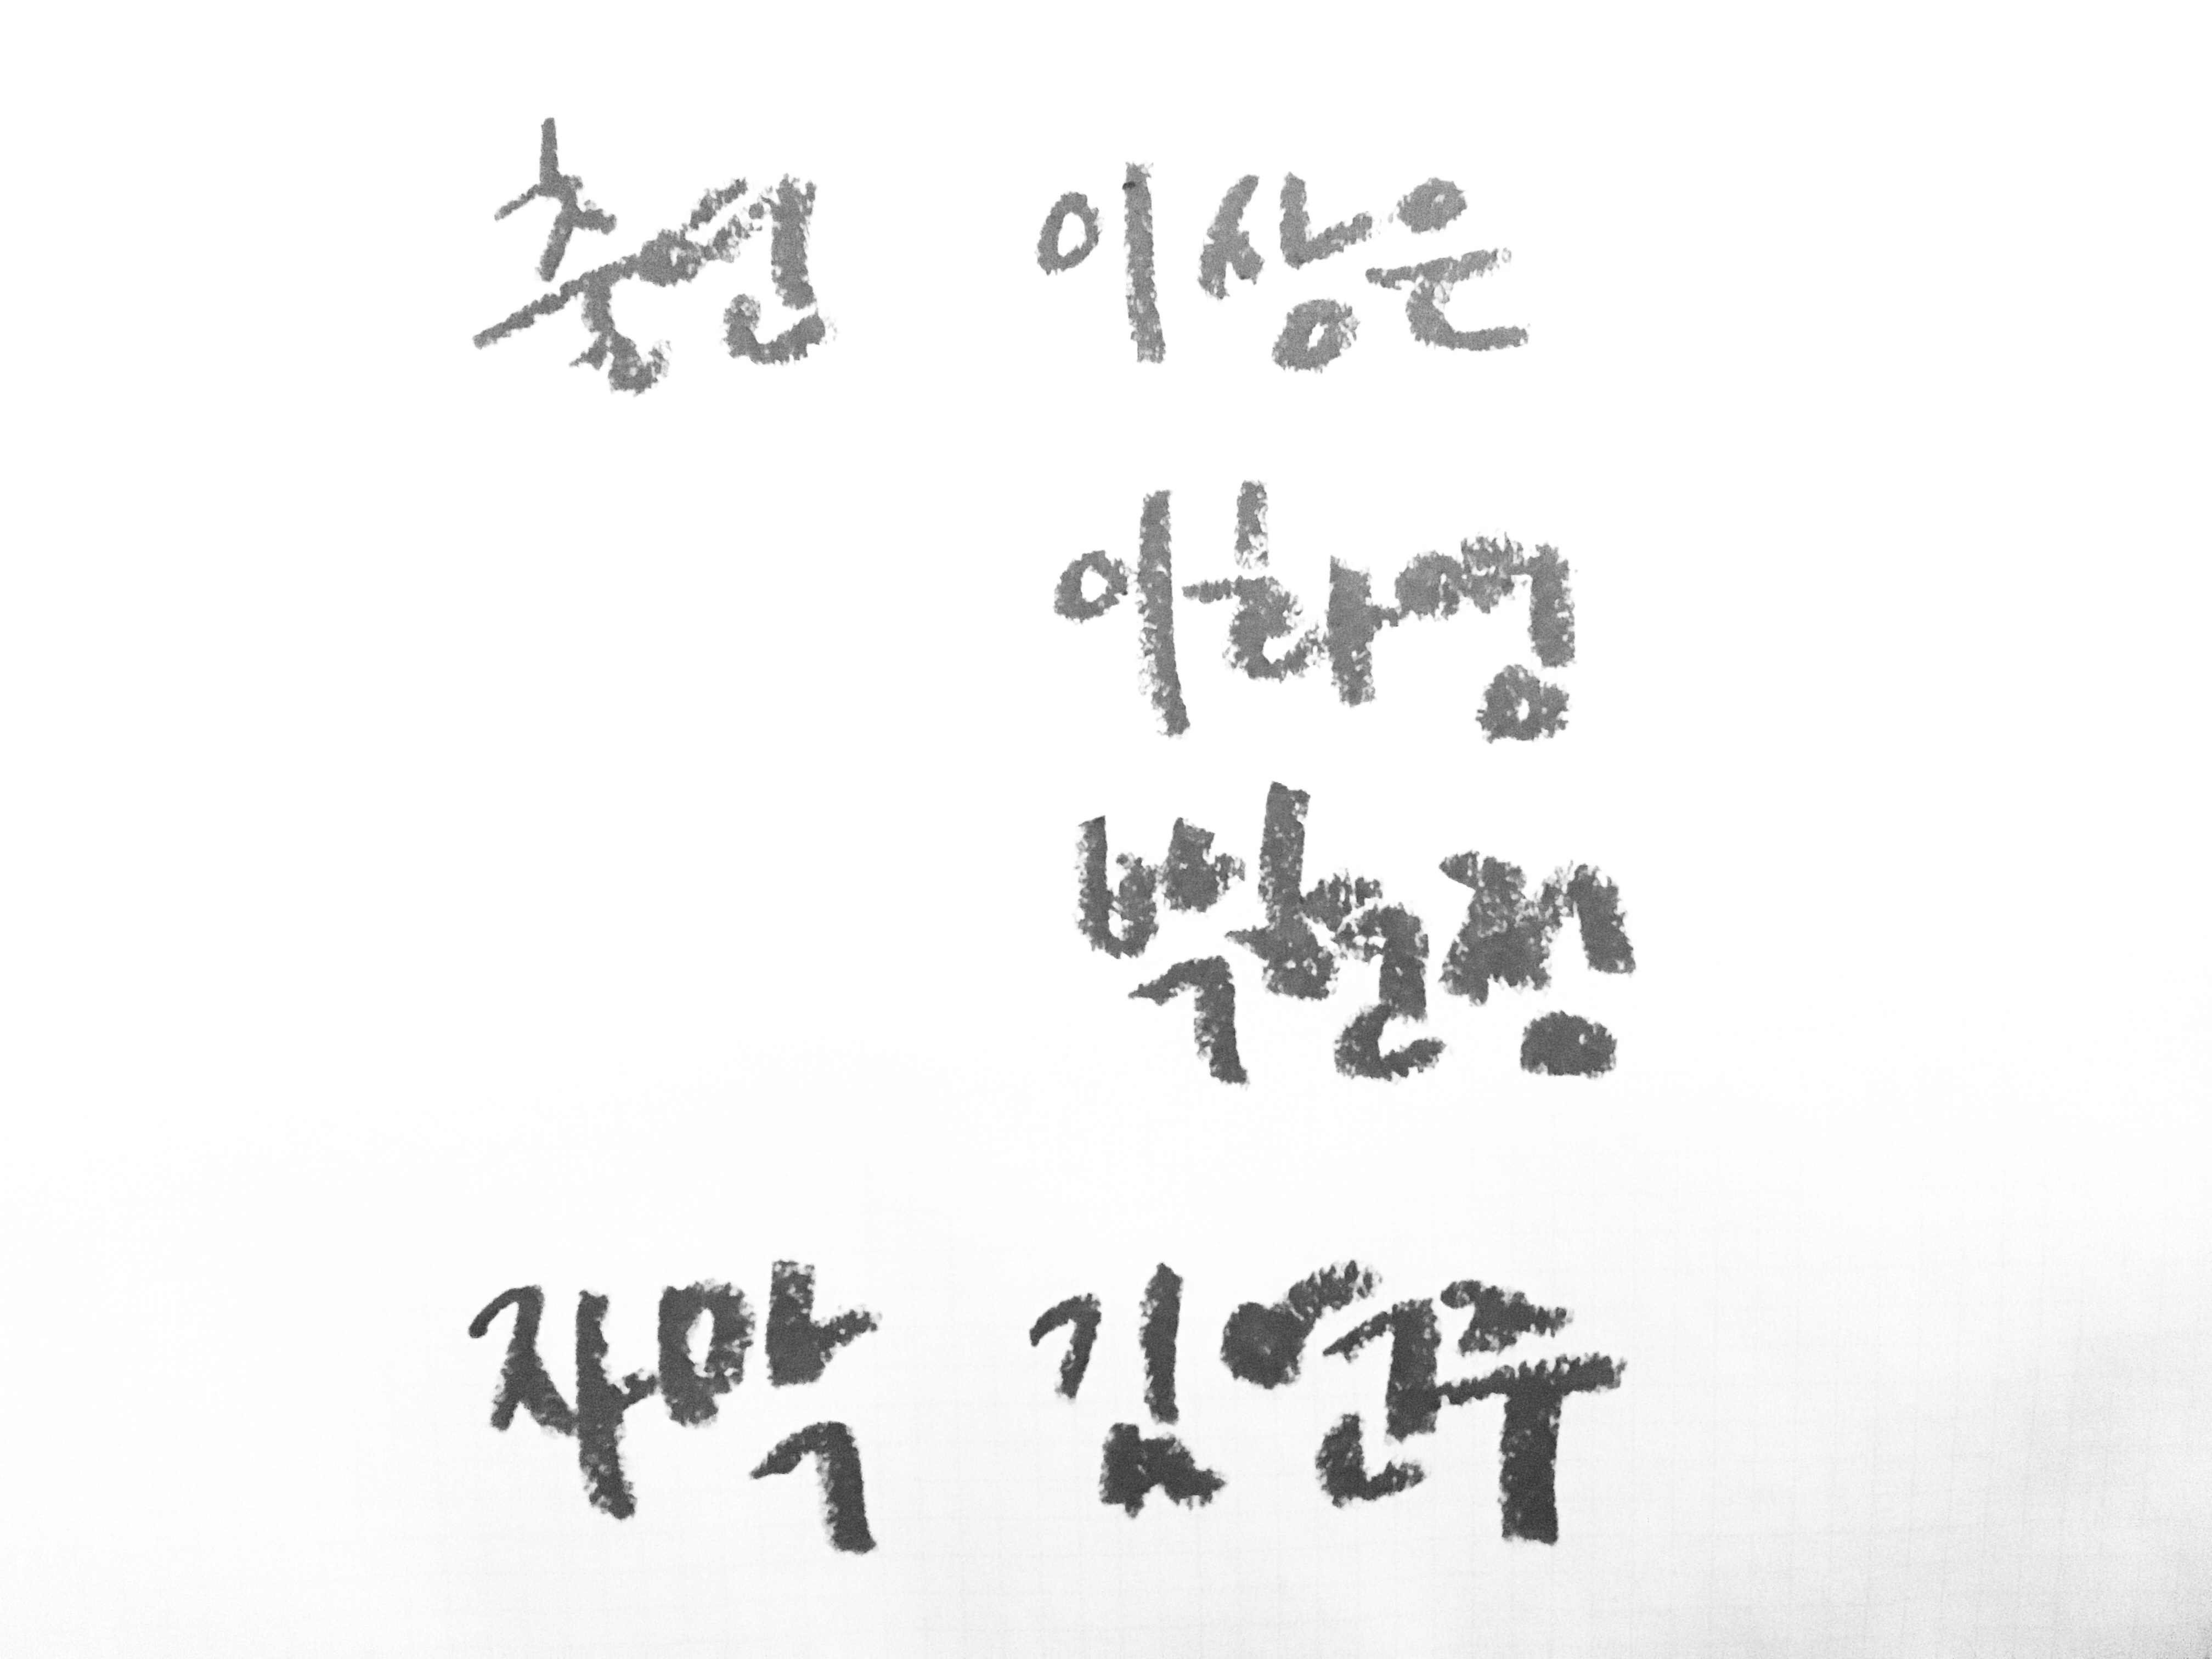 출연 이상은
이하영
박현정
자막 김연주